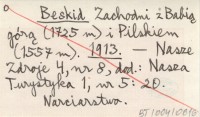 Beskid Zachodni z Babią
górą (1725 m) i Pilskiem
(1557 m). 1913. — Nasze
Zdroje 4, nr 8, dod.: Nasza
Turystyka 1, nr 5: 20.
Narciarstwo.